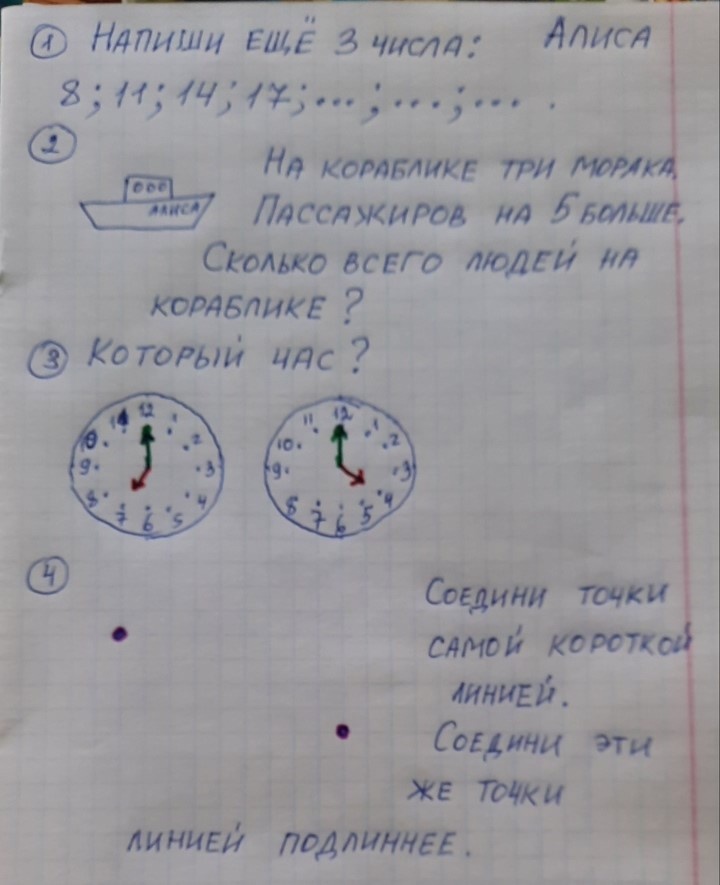 ① Напиши ещё 3 числа: Алиса
8; 11; 14; 17; ...; ...; ... .
②
На кораблике три моряка.
ООО
АЛИСА
Пассажиров на 5 больше.
Сколько всего людей на
кораблике?
③ Который час?
12 1 2 3 4 5 6 7 8 9 10 11
12 1 2 3 4 5 6 7 8 9 10 11
④
Соедини точки
самой короткой
линией.
Соедини эти
же точки
линией подлиннее.